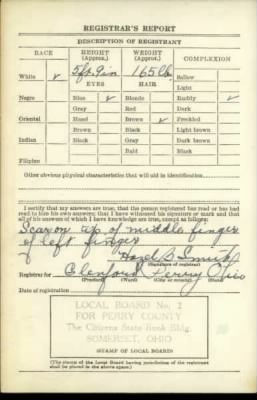 REGISTRAR'S REPORT
DESCRIPTION OF REGISTRANT
RACE HEIGHT (Approx.) WEIGHT (Approx.) COMPLEXION
5ft. 9in 165 lb.
White ✓ Sallow
EYES HAIR Light
Negro Blue ✓ Blonde Ruddy ✓
Gray Red Dark
Oriental Hazel Brown ✓ Freckled
Brown Black Light brown
Indian Black Gray Dark brown
Bald Black
Filipino
Other obvious physical characteristics that will aid in identification
I certify that my answers are true; that the person registered has read or has had
read to him his own answers; that I have witnessed his signature or mark and that
all of his answers of which I have knowledge are true, except as follows:
Scar on tip of middle finger
of left finger
Hazel B Smith
(Signature of registrar)
Registrar for Glenford Perry Ohio
(Precinct) (Ward) (City or county) (State)
Date of registration
LOCAL BOARD No. 2
FOR PERRY COUNTY
The Citizens State Bank Bldg.
SOMERSET, OHIO
(STAMP OF LOCAL BOARD)
(The stamp of the Local Board having jurisdiction of the registrant
shall be placed in the above space.)